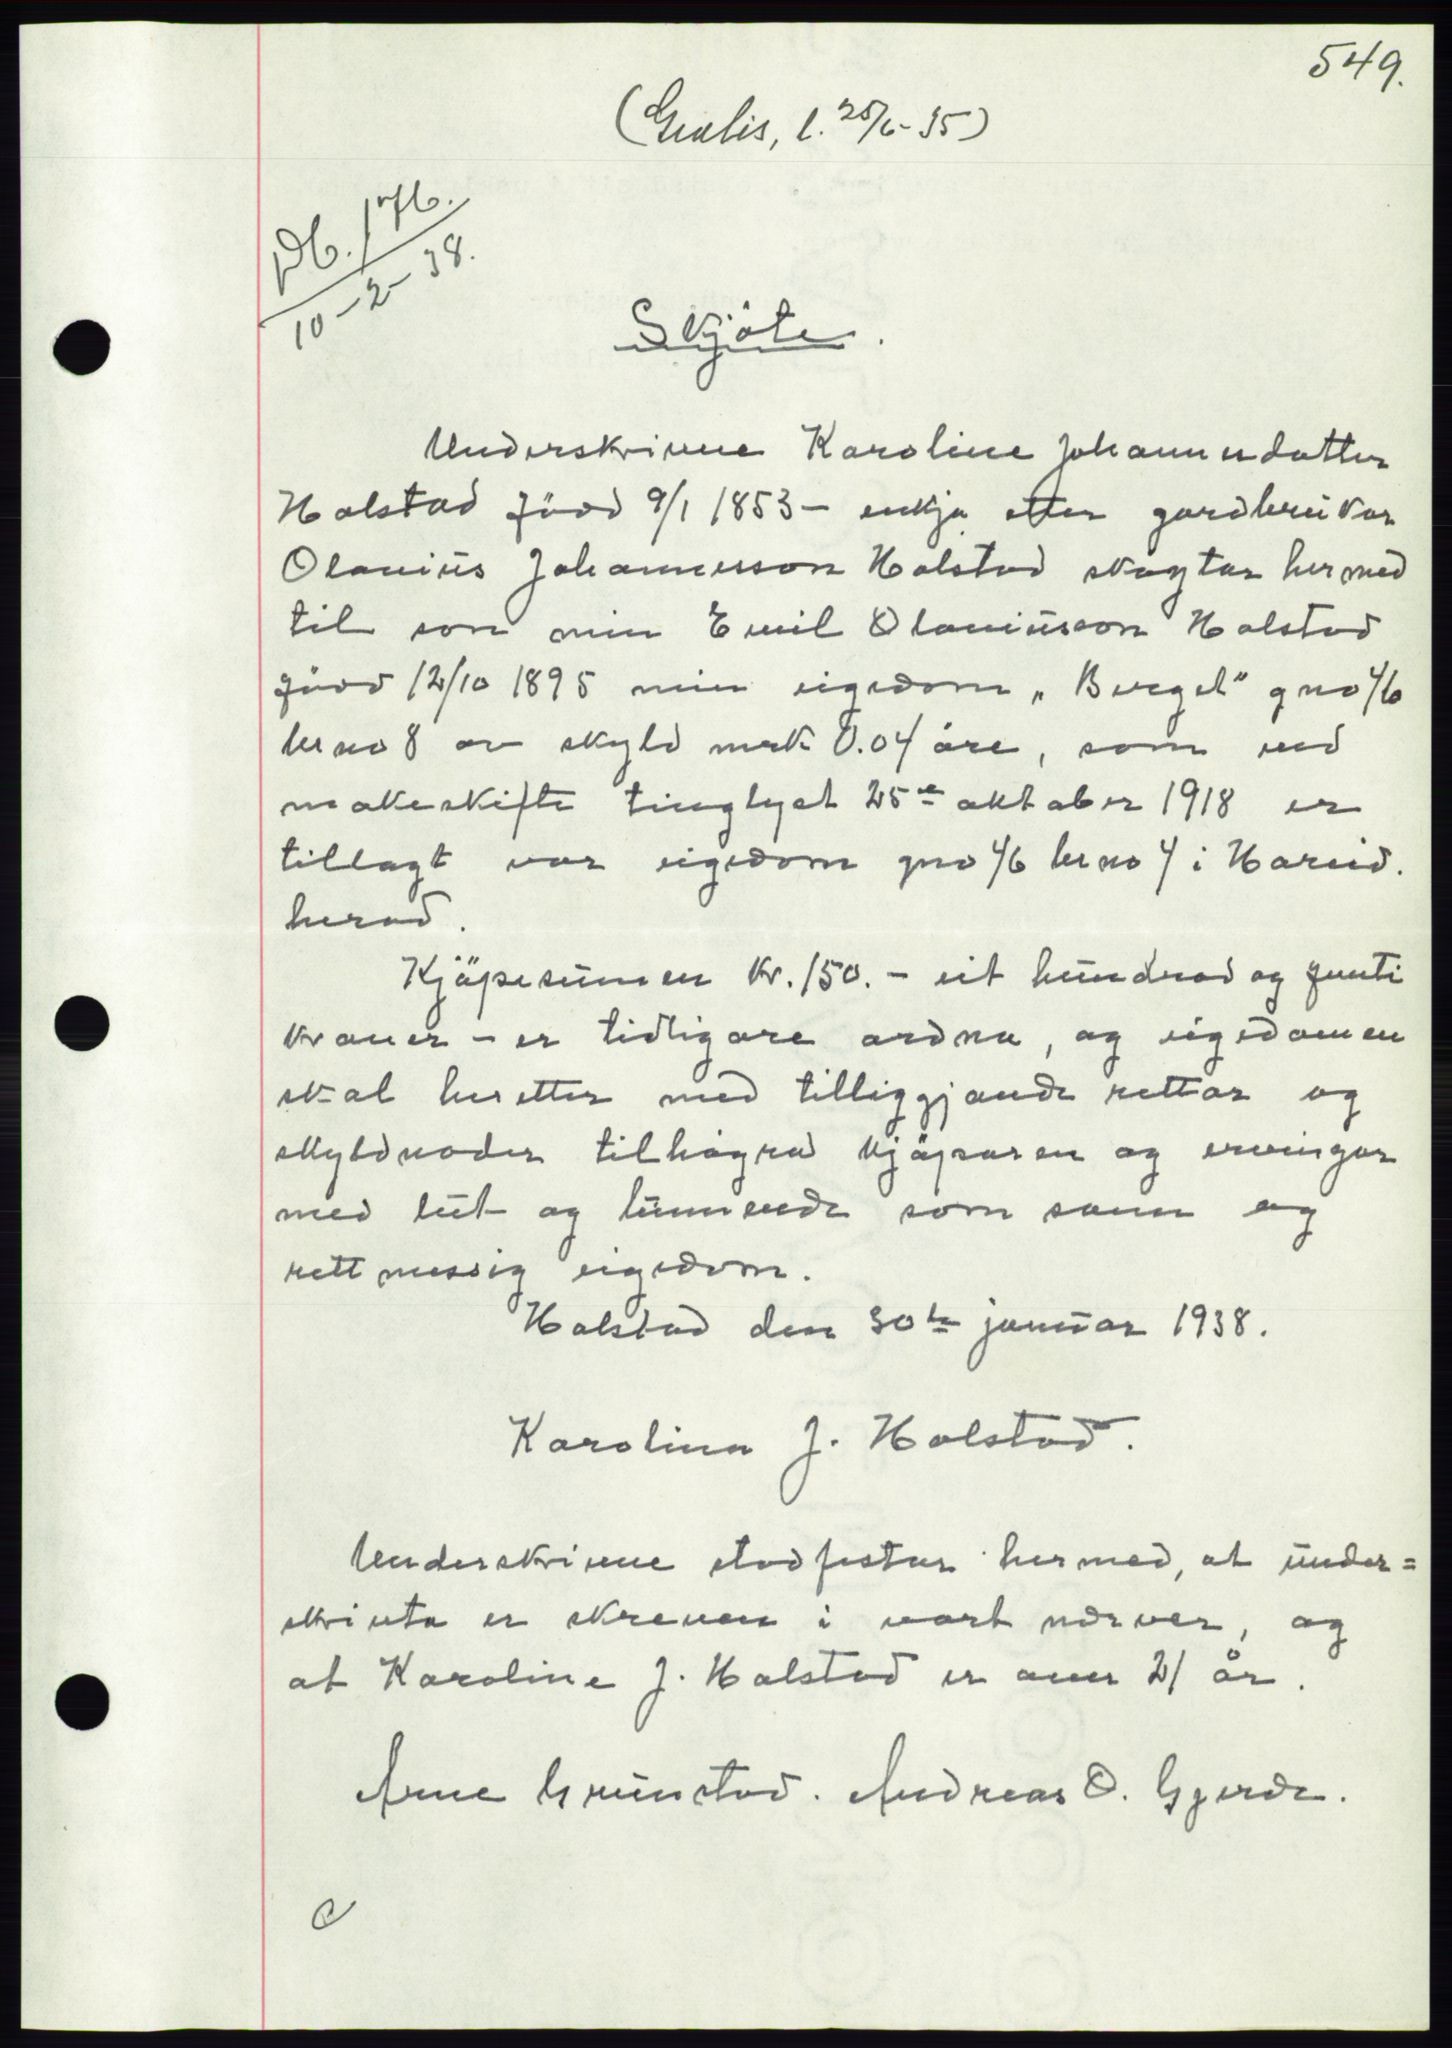 549.
(Gratis, l. 25/6-35)
Db. 176.
10-2-38.
Skjöte.
Underskrivne Karoline Johannesdatter
Holstad född 9/1 1853 - enkja etter gardbrukar
Olanius Johannesson Holstad skøytar hermed
til son min Emil Olaniusson Holstad
född 12/10 1895 min eigedom "Berget" gno 46
br no 8 av skyld mrk 0.04 öre, som ved
makeskifte tinglyst 25de oktober 1918 er
tillagt vor eigedom gno 46 br no 4 i Hareid.
herad.
Kjöpesumen kr. 150. - eit hundrad og femti
kroner - er tidligare ordna, og eigedomen
skal heretter med tilliggjande rettar og
skyldnader tilhøyra kjöparen og ervingar
med lut og lunnende som sann og
rettmessig eigedom.
Holstad den 30te januar 1938.
Karolina J. Holstad.
Underskrivne stadfestar hermed, at under=
skrivta er skreven i vort nærver, og
at Karoline J. Holstad er over 21 år.
Arne Grimstad. Andreas O. Gjerde.